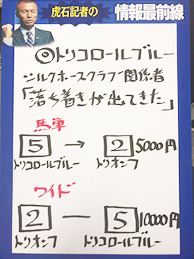 虎石記者の
情報最前線
◎トリコロールブルー
シルクホースクラブ関係者
「落ち着きが出てきた」
馬単
5 → 2 5000円
トリコロールブルー トリオンフ
ワイド
2 ー 5 10000円
トリオンフ トリコロールブルー